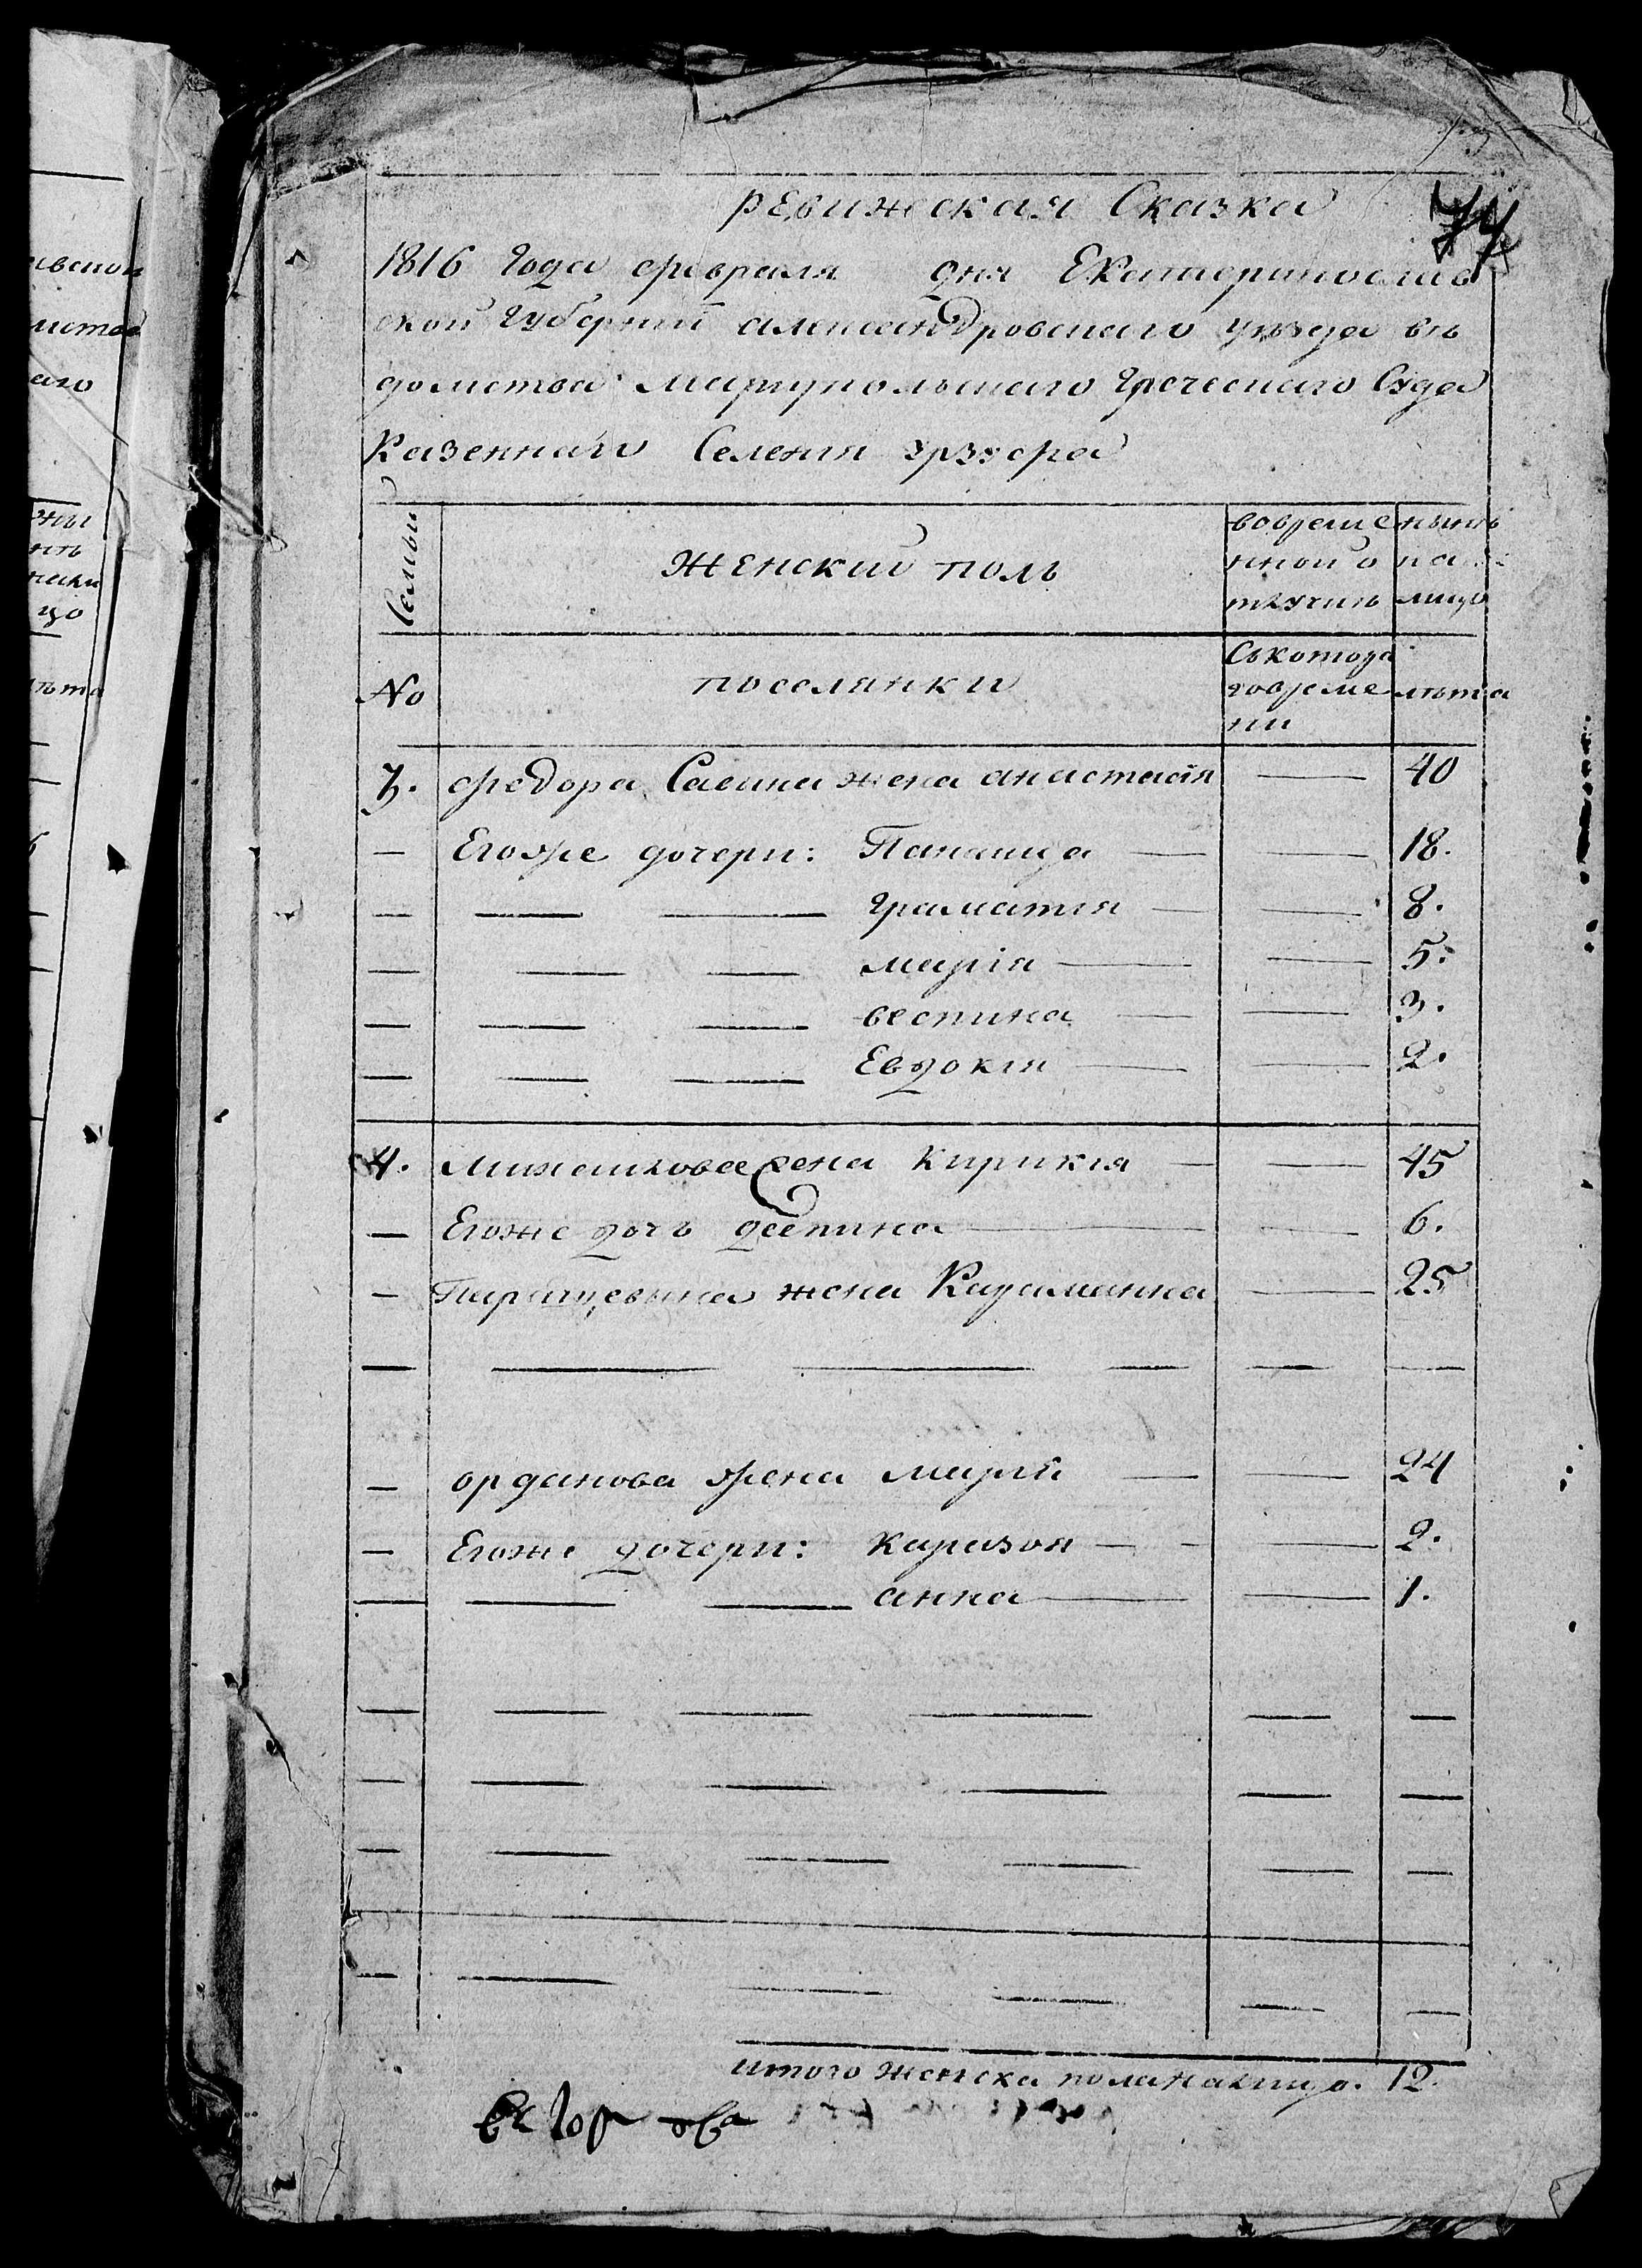 74
Ревижская Сказка
1816 Года февраля дня Екатеринослав
ской Губернии александровскаго уезда въ
домства мариупольскаго Греческаго Суда
Казеннаго Селения Урзуфа
Семьи
Женский полъ
вовреме
нной о
тлучкъ
нынъ
на
лицо
№
поселянки
Съкотора
говреме
ни
лъта
3. федора Саенка жена анастасія 40
Егоже дочери: Панаида 18.
Граматія 8.
марія 5.
веспина 3.
Евдокія 2.
4. жена Кирикія 45
Егоже дочь деспина 6.
жена 25
орданова жена марія 24
Егоже дочери: каразоя 2.
анна 1.
итого женска пола налицо. 12.